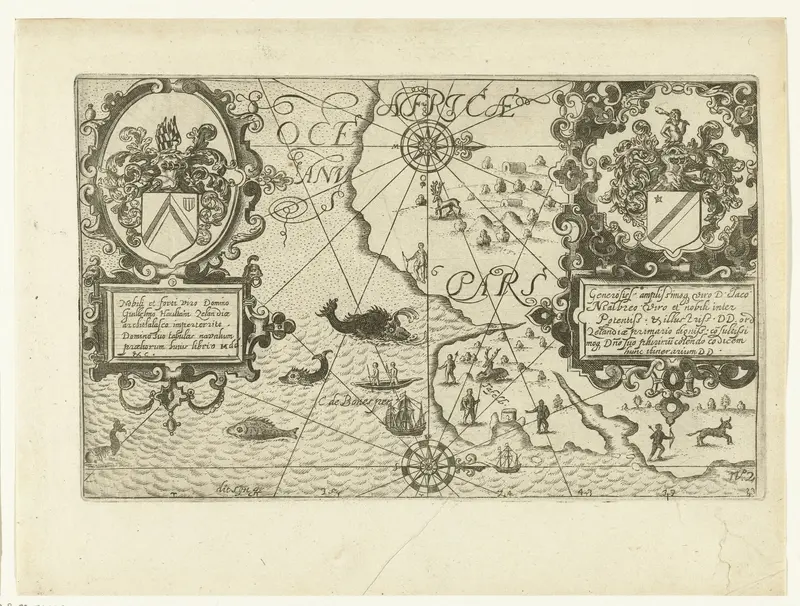 AFRICÆ
OCE
ANV
S
PARS
Nobili et forti viro Domino
Guilielmo Haultain Zelandiæ
architalasso imperterrito
Domino suo tabulas navalium
præliorum huius libris
Generosiss. amplissimoq viro D. Iaco
viro et nobili inter
Potentiss. & illustriss. DD. ord
Zelandiæ primario digniss.
moq Dno suo
hunc itinerarium D D
C de Bone spei
N.º 2